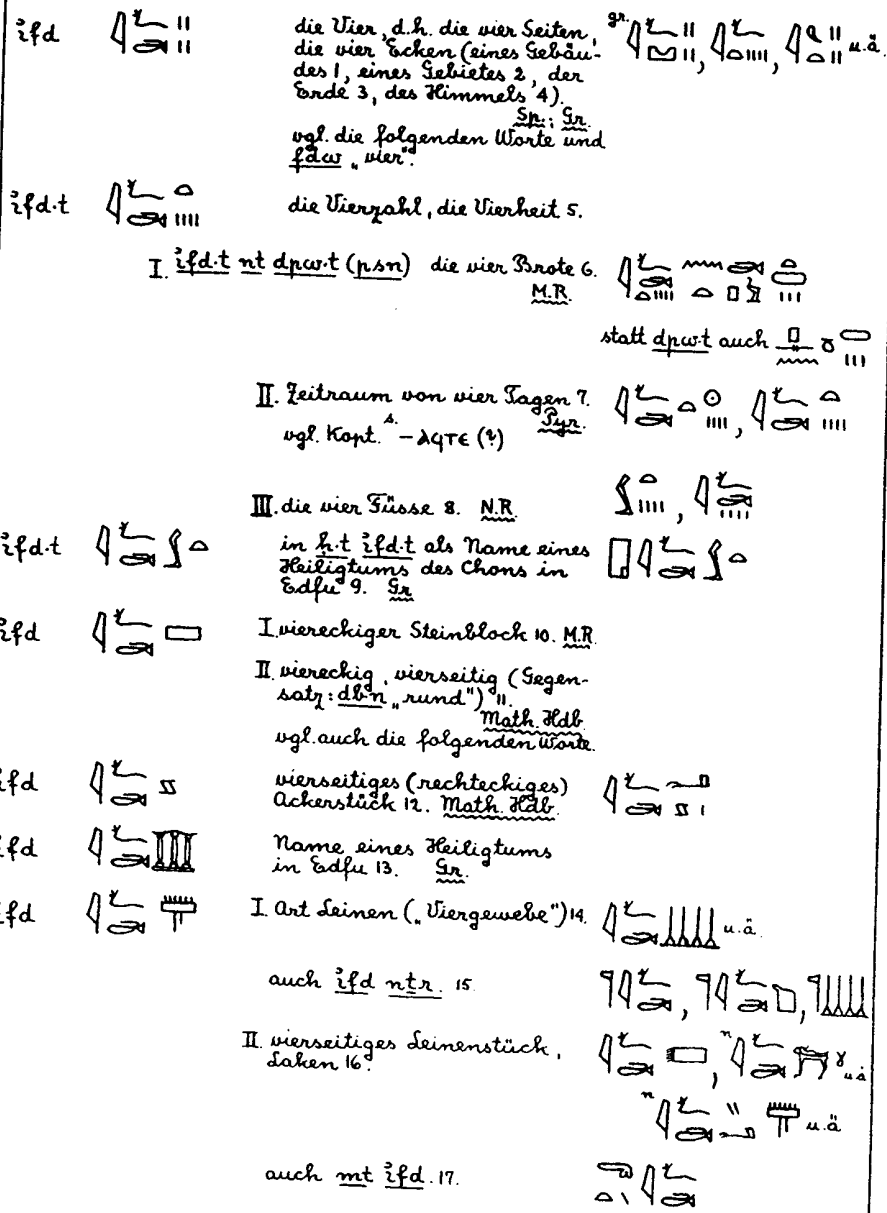 ꞽfd die Vier, d.h. die vier Seiten, gr. u.ä.
die vier Ecken (eines Gebäu-
des 1, eines Gebietes 2, der
Erde 3, des Himmels 4).
Sp.; Gr.
vgl. die folgenden Worte und
fdw „vier".
ꞽfd·t die Vierzahl, die Vierheit 5.
I. ꞽfd·t nt dpw·t (psn) die vier Brote 6.
M.R.
statt dpw·t auch
II. Zeitraum von vier Tagen 7.
Pyr.
vgl. Kopt. s. –ⲁϥⲧⲉ (?)
III. die vier Füsse 8. N.R.
ꞽfd·t in ḥ·t ꞽfd·t als Name eines
Heiligtums des Chons in
Edfu 9. Gr
ꞽfd I. viereckiger Steinblock 10. M.R.
II. viereckig, vierseitig (Gegen-
satz: dbn „rund") 11.
Math. Hdb.
vgl. auch die folgenden Worte.
ꞽfd vierseitiges (rechteckiges)
Ackerstück 12. Math. Hdb.
ꞽfd Name eines Heiligtums
in Edfu 13. Gr.
ꞽfd I. Art Leinen („Viergewebe") 14. u.ä.
auch ꞽfd nṯr. 15.
II. vierseitiges Leinenstück, n u.ä
Laken 16.
n u.ä
auch mt ꞽfd. 17.